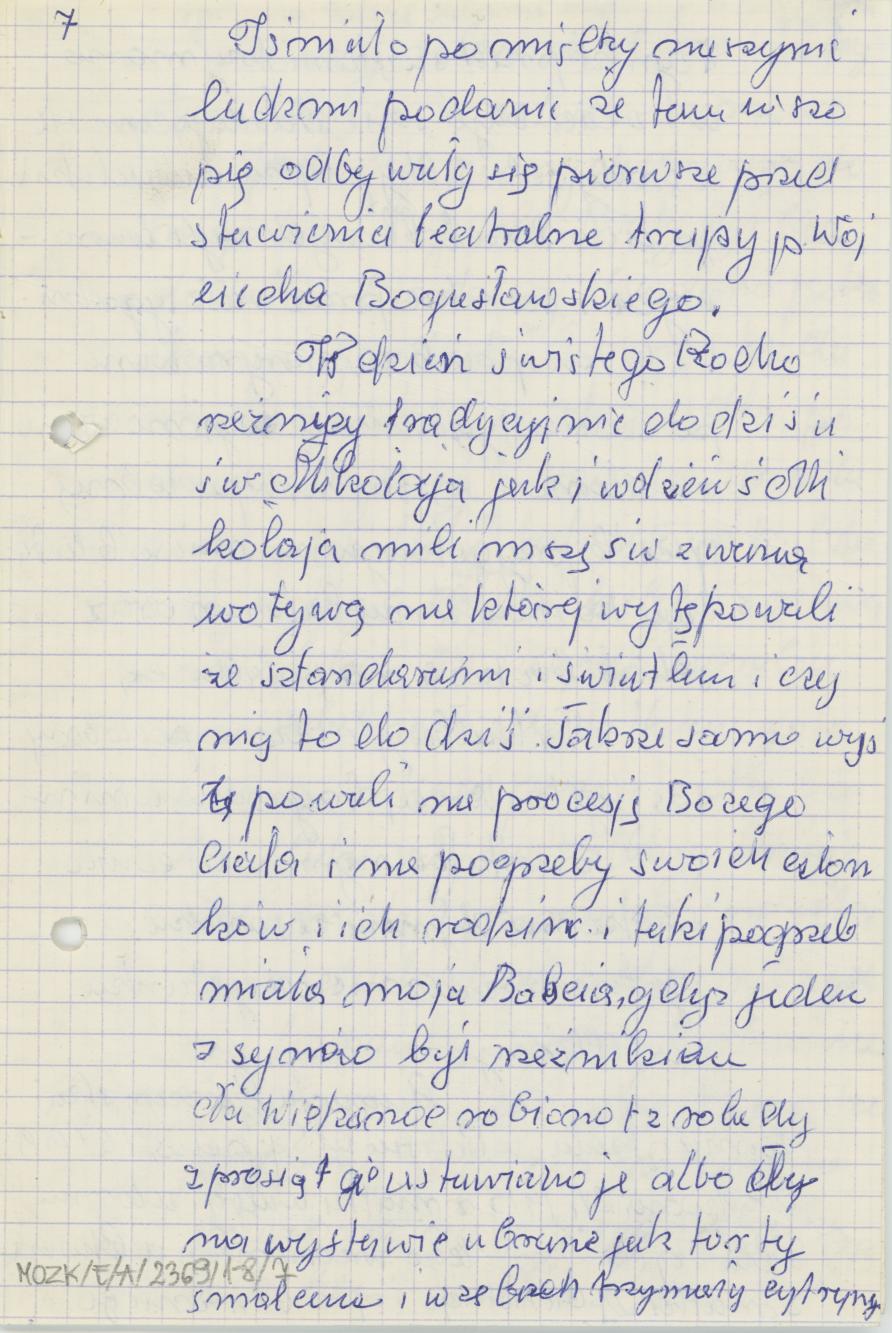 7
Istniało pomiędzy naszymi
ludzmi podanie że tam w szo
pię odbywały się pierwsze pzed
stawienia teatralne trupy p Woj
ciecha Bogusławskiego.
W dzień świętego Rocha
rzeźnigy tradycyjnie do dziś u
św. Mikołaja jak i w dzień ś Mi
kołaja mili mszę św z
wotywą na której wytępowali
ze sztandarami i światłem i czy
nią to do dziś. Takrze samo wys
tę powali na procesję Bozego
Ciała i na pogrzeby swoich człon
ków i ich rodzin. i taki pogrzeb
miała moja Babcia, gdyz jeden
z synów był rzeźnikiem
Na Wielkanoc robiono tz rolady
z prosiąt ustawiano je albo
na wystawie ubrane jak torty
smalcem i w zębach trzymały cytryny
MOZK/E/A/2369/1-8/7